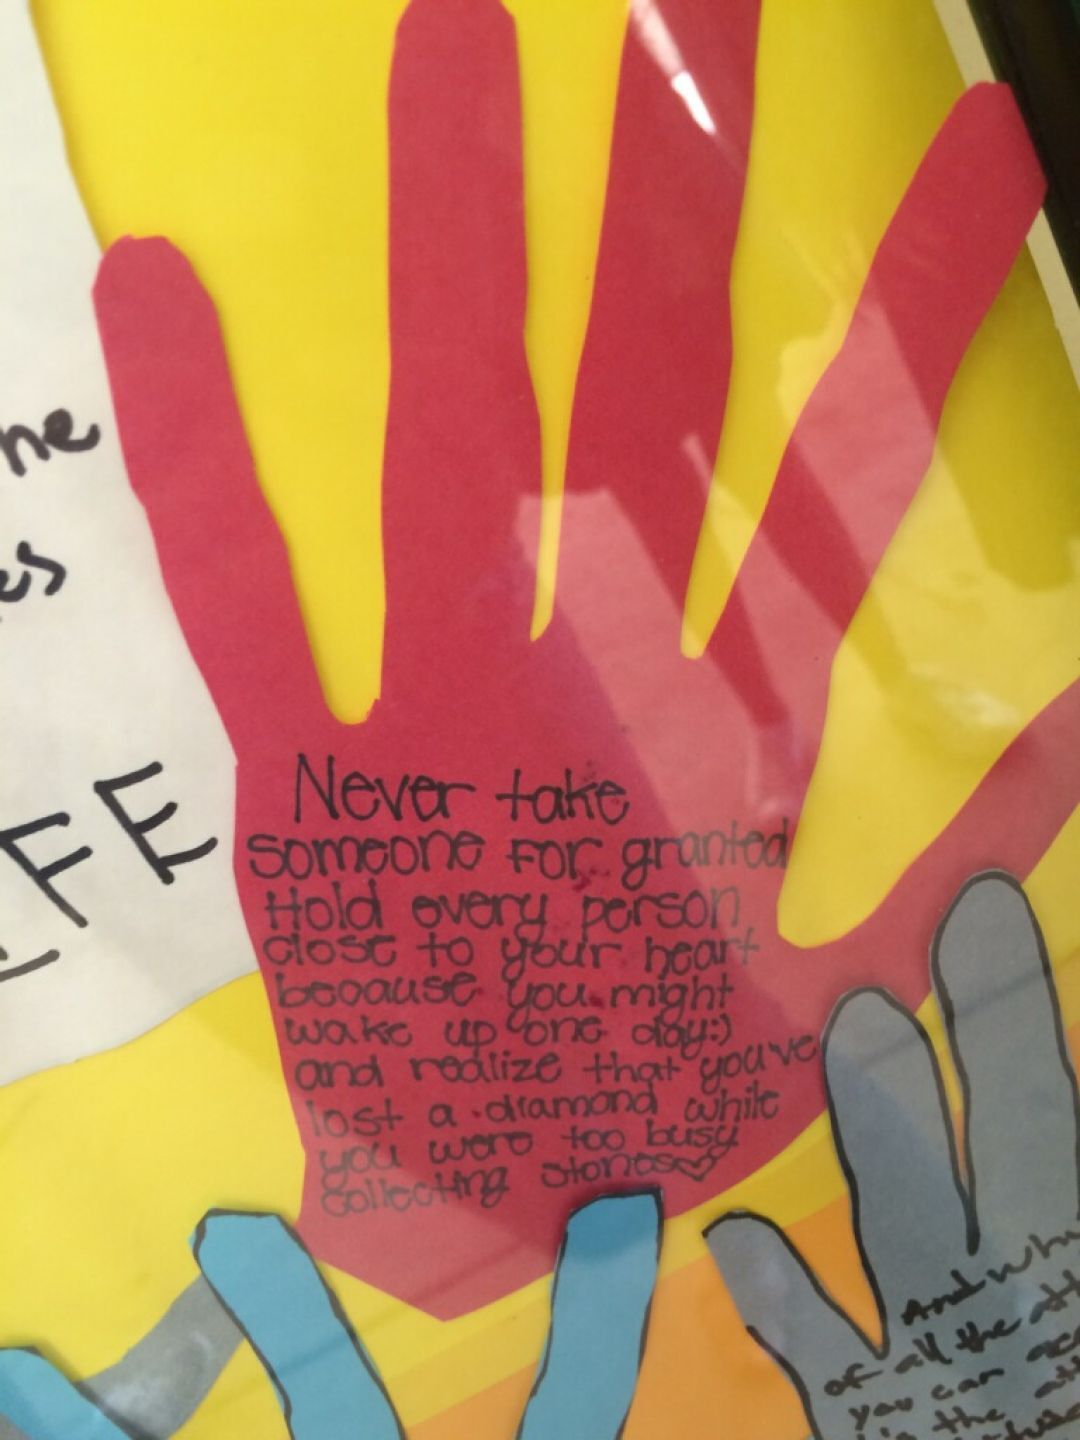 Never take
someone for granted
Hold every person
close to your heart
because you might
wake up one day:)
and realize that you've
lost a diamond while
you were too busy
collecting stones♡
he
es
FE
And whi
of all the att
you can acq
is the att